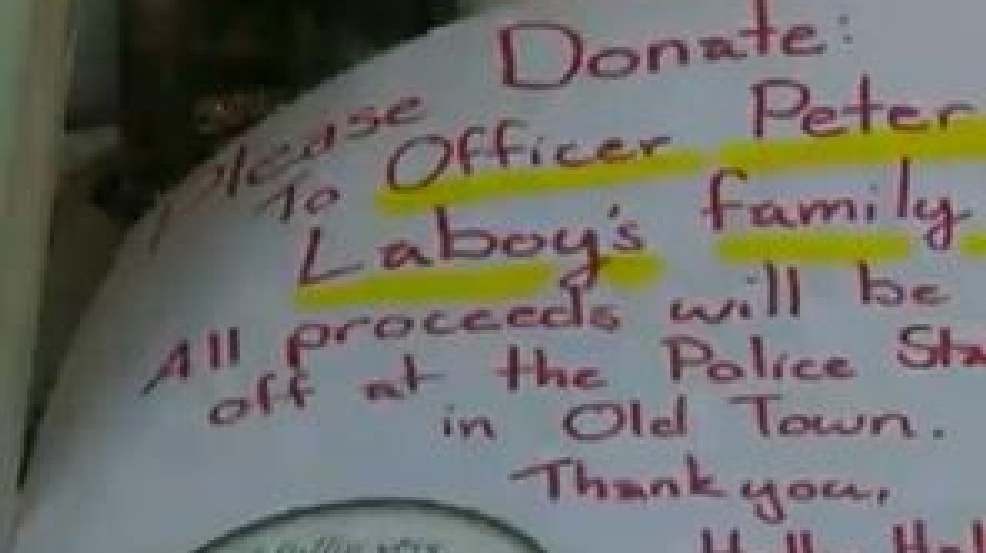 Please Donate:
To Officer Peter
Laboy's family
All proceeds will be
off at the Police Sta
in Old Town.
Thank you,